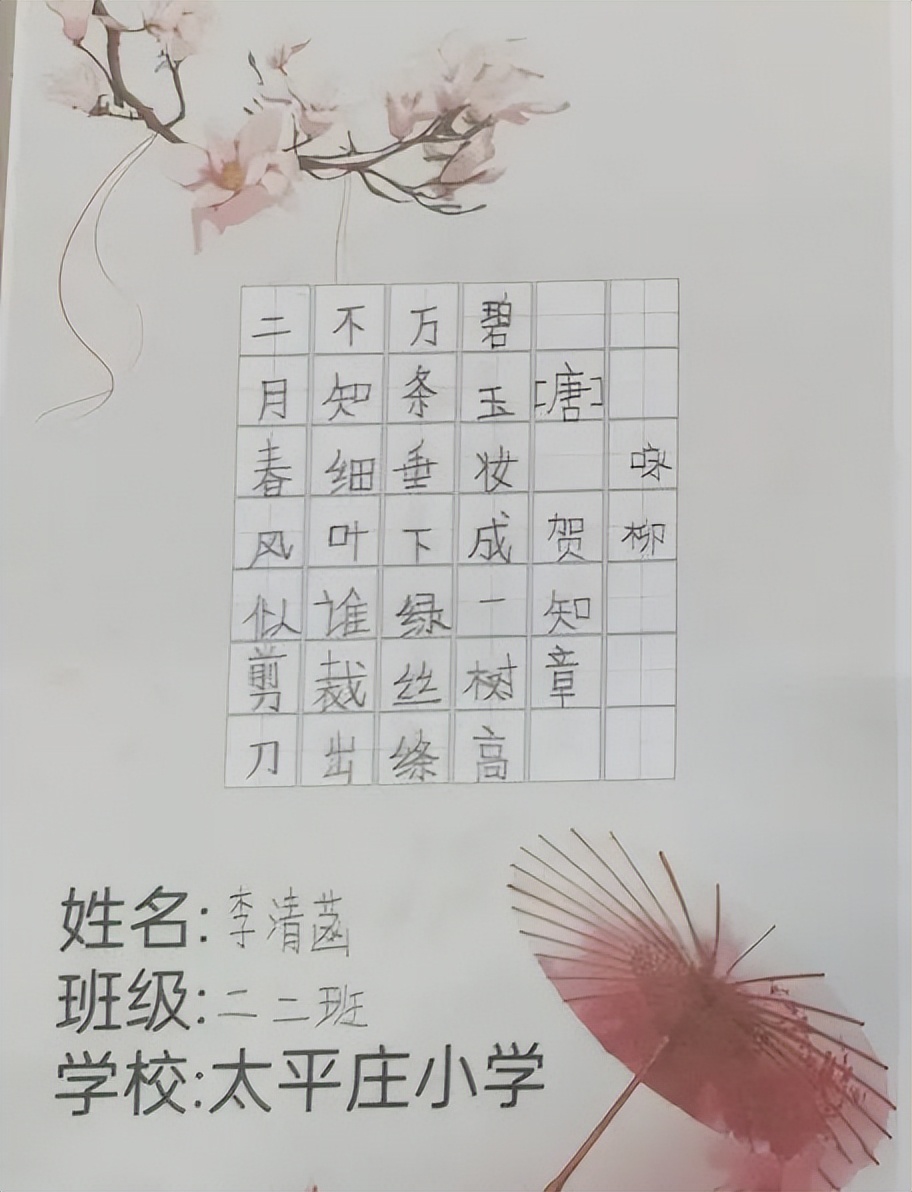 咏柳
[唐]贺知章
碧玉妆成一树高
万条垂下绿丝绦
不知细叶谁裁出
二月春风似剪刀
姓名:李清菡
班级:二二班
学校:太平庄小学